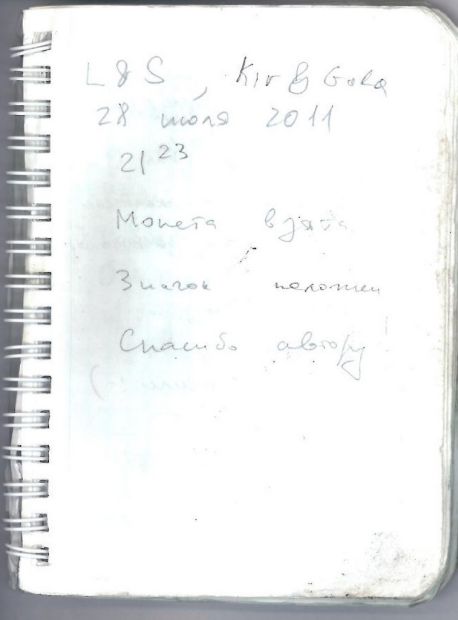 L & S, Kir & Gala
28 июля 2011
21 23
Монета взята
Значок положен
Спасибо автору